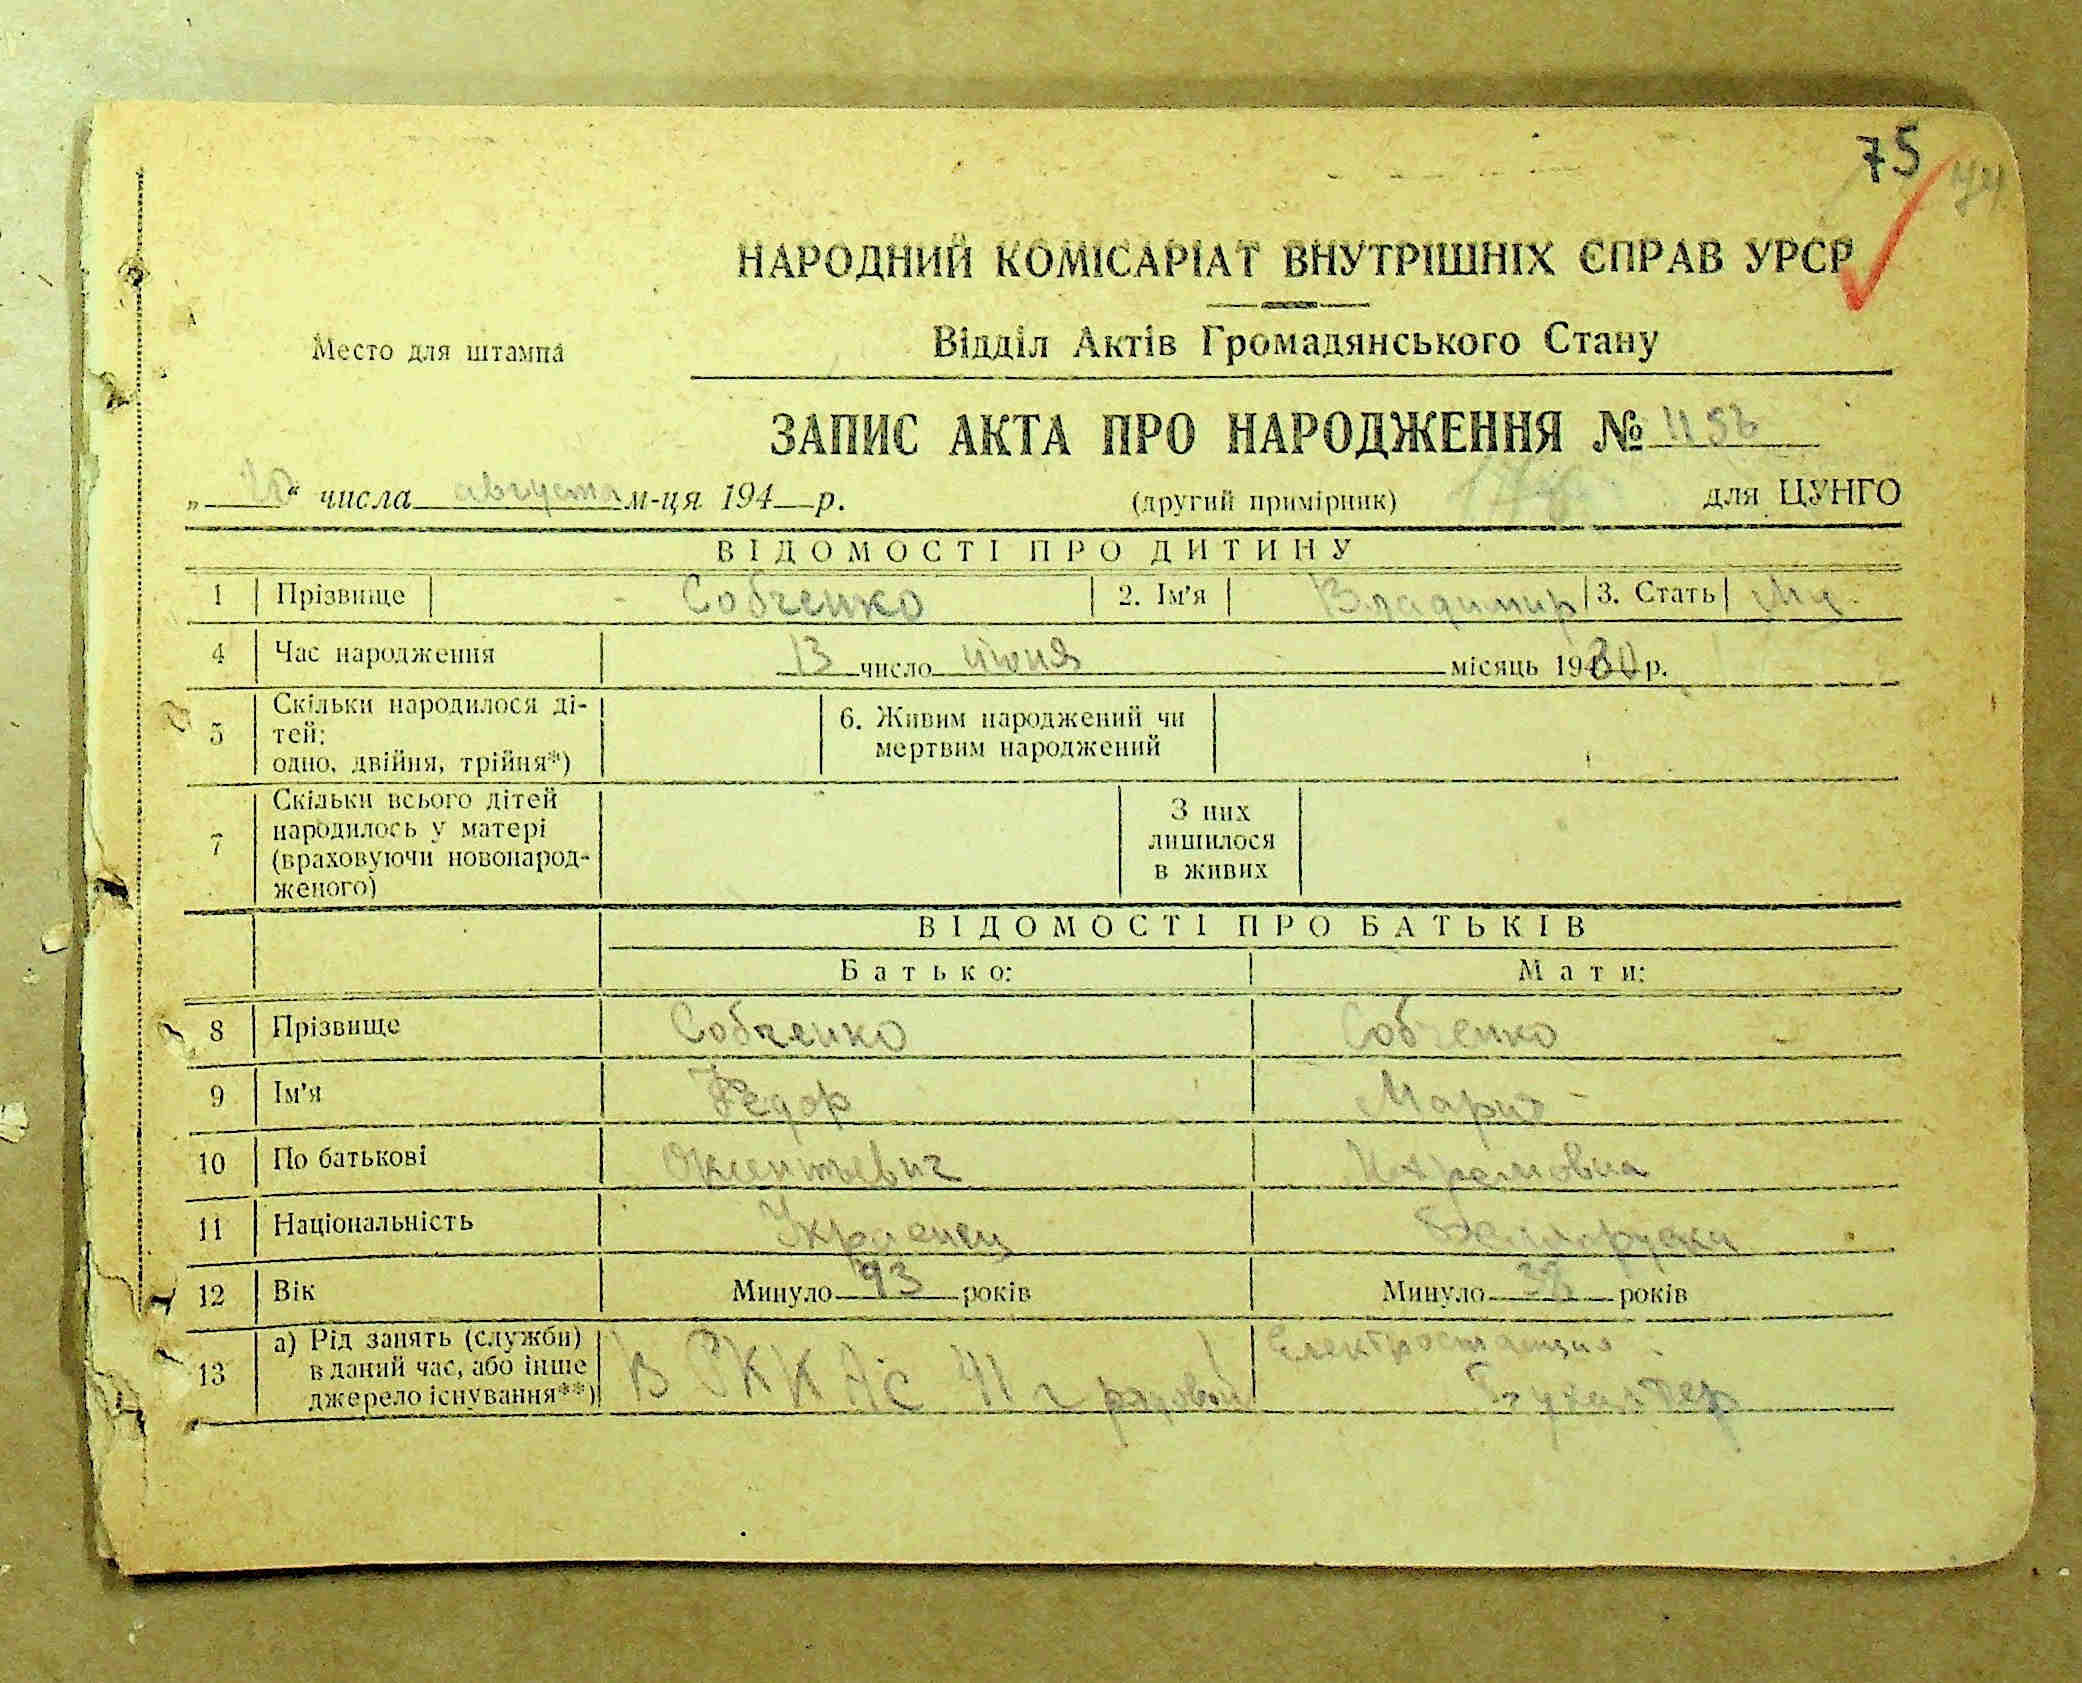 75
НАРОДНИЙ КОМІСАРІАТ ВНУТРІШНІХ СПРАВ УРСР
Место для штампа
Відділ Актів Громадянського Стану
ЗАПИС АКТА ПРО НАРОДЖЕННЯ №
„ “ числа августа м-ця 194 р. (другий примірник) для ЦУНГО
ВІДОМОСТІ ПРО ДИТИНУ
1 Прізвище Собченко 2. Ім'я Владимир 3. Стать
4 Час народження 13 число июня місяць 1930 р.
5 Скільки народилося ді-
тей:
одно, двійня, трійня*)
6. Живим народжений чи
мертвим народжений
7 Скільки всього дітей
народилось у матері
(враховуючи новонарод-
женого)
З них
лишилося
в живих
ВІДОМОСТІ ПРО БАТЬКІВ
Батько: Мати:
8 Прізвище Собченко Собченко
9 Ім'я Федор Мария
10 По батькові
11 Національність Украенец Белларуска
12 Вік Минуло 43 років Минуло 38 років
13 а) Рід занять (служби)
в даний час, або інше
джерело існування**)
В РККА с 41 г рядовой
Електростанция
Бухалтер